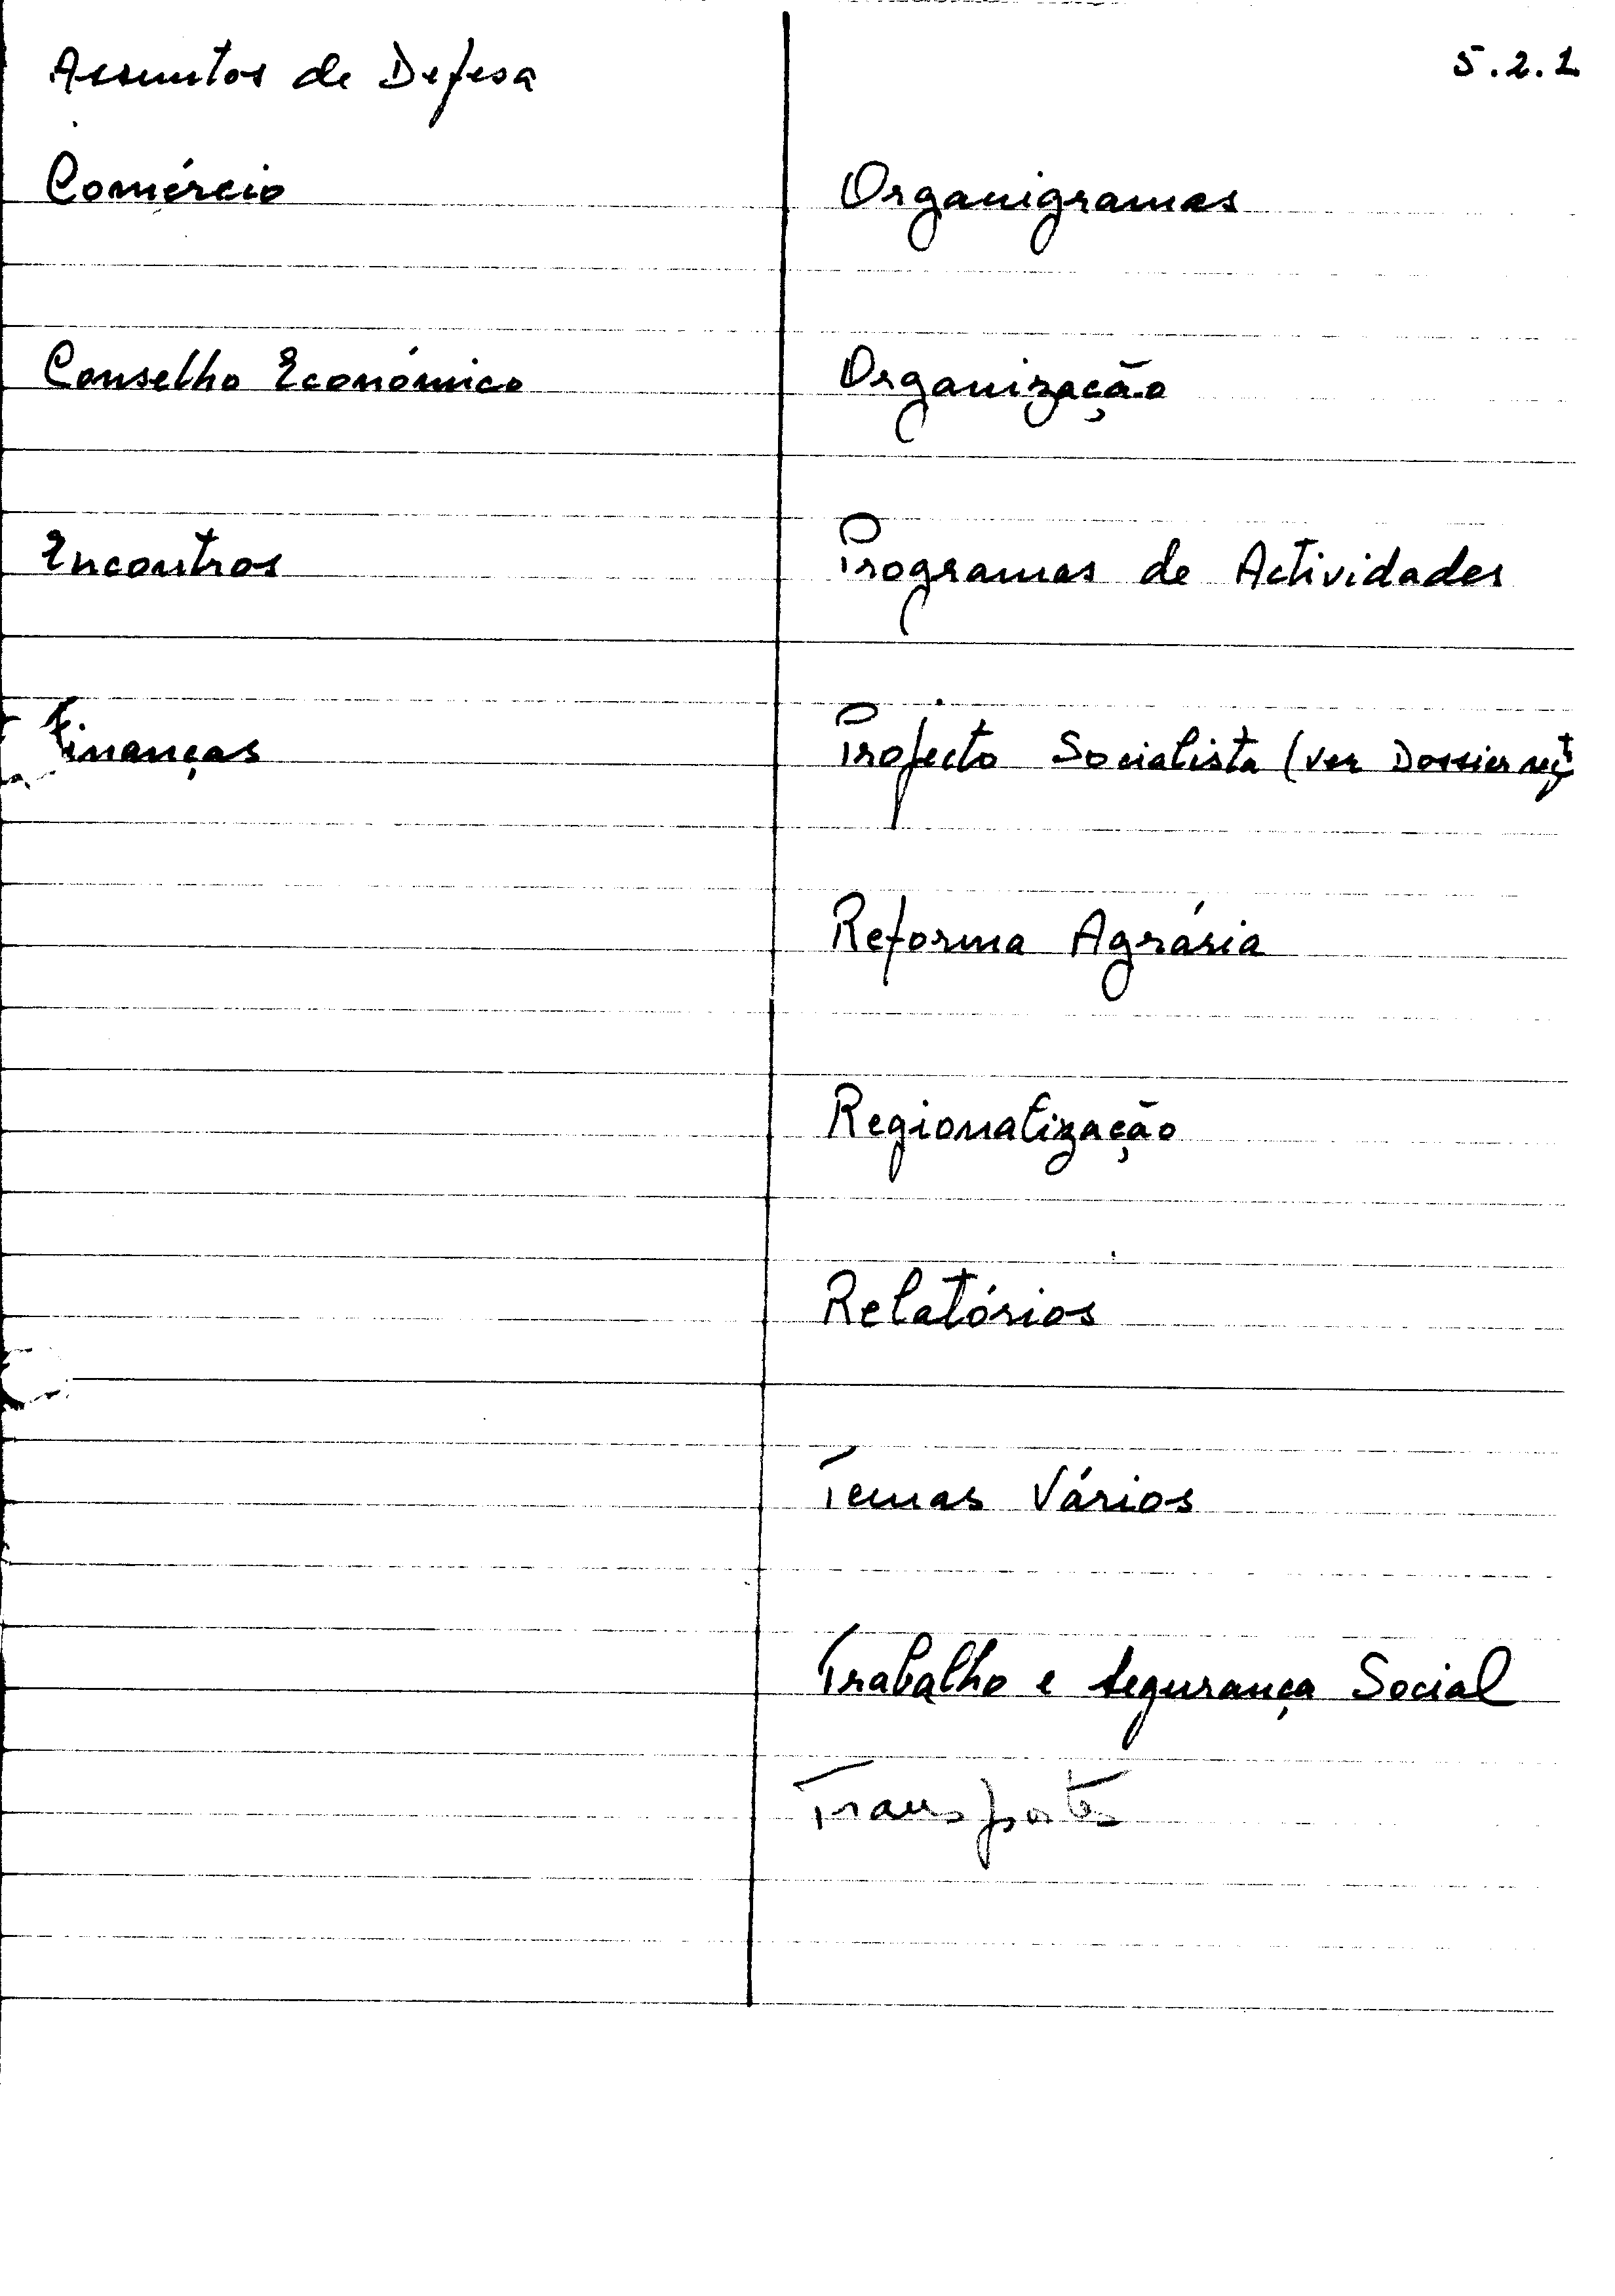 Assuntos de Defesa
Comércio
Conselho Económico
Encontros
Finanças
5.2.1
Organigramas
Organização
Programas de Actividades
Projecto Socialista (ver Dossier
Reforma Agrária
Regionalização
Relatórios
Temas Vários
Trabalho e Segurança Social
Transportes